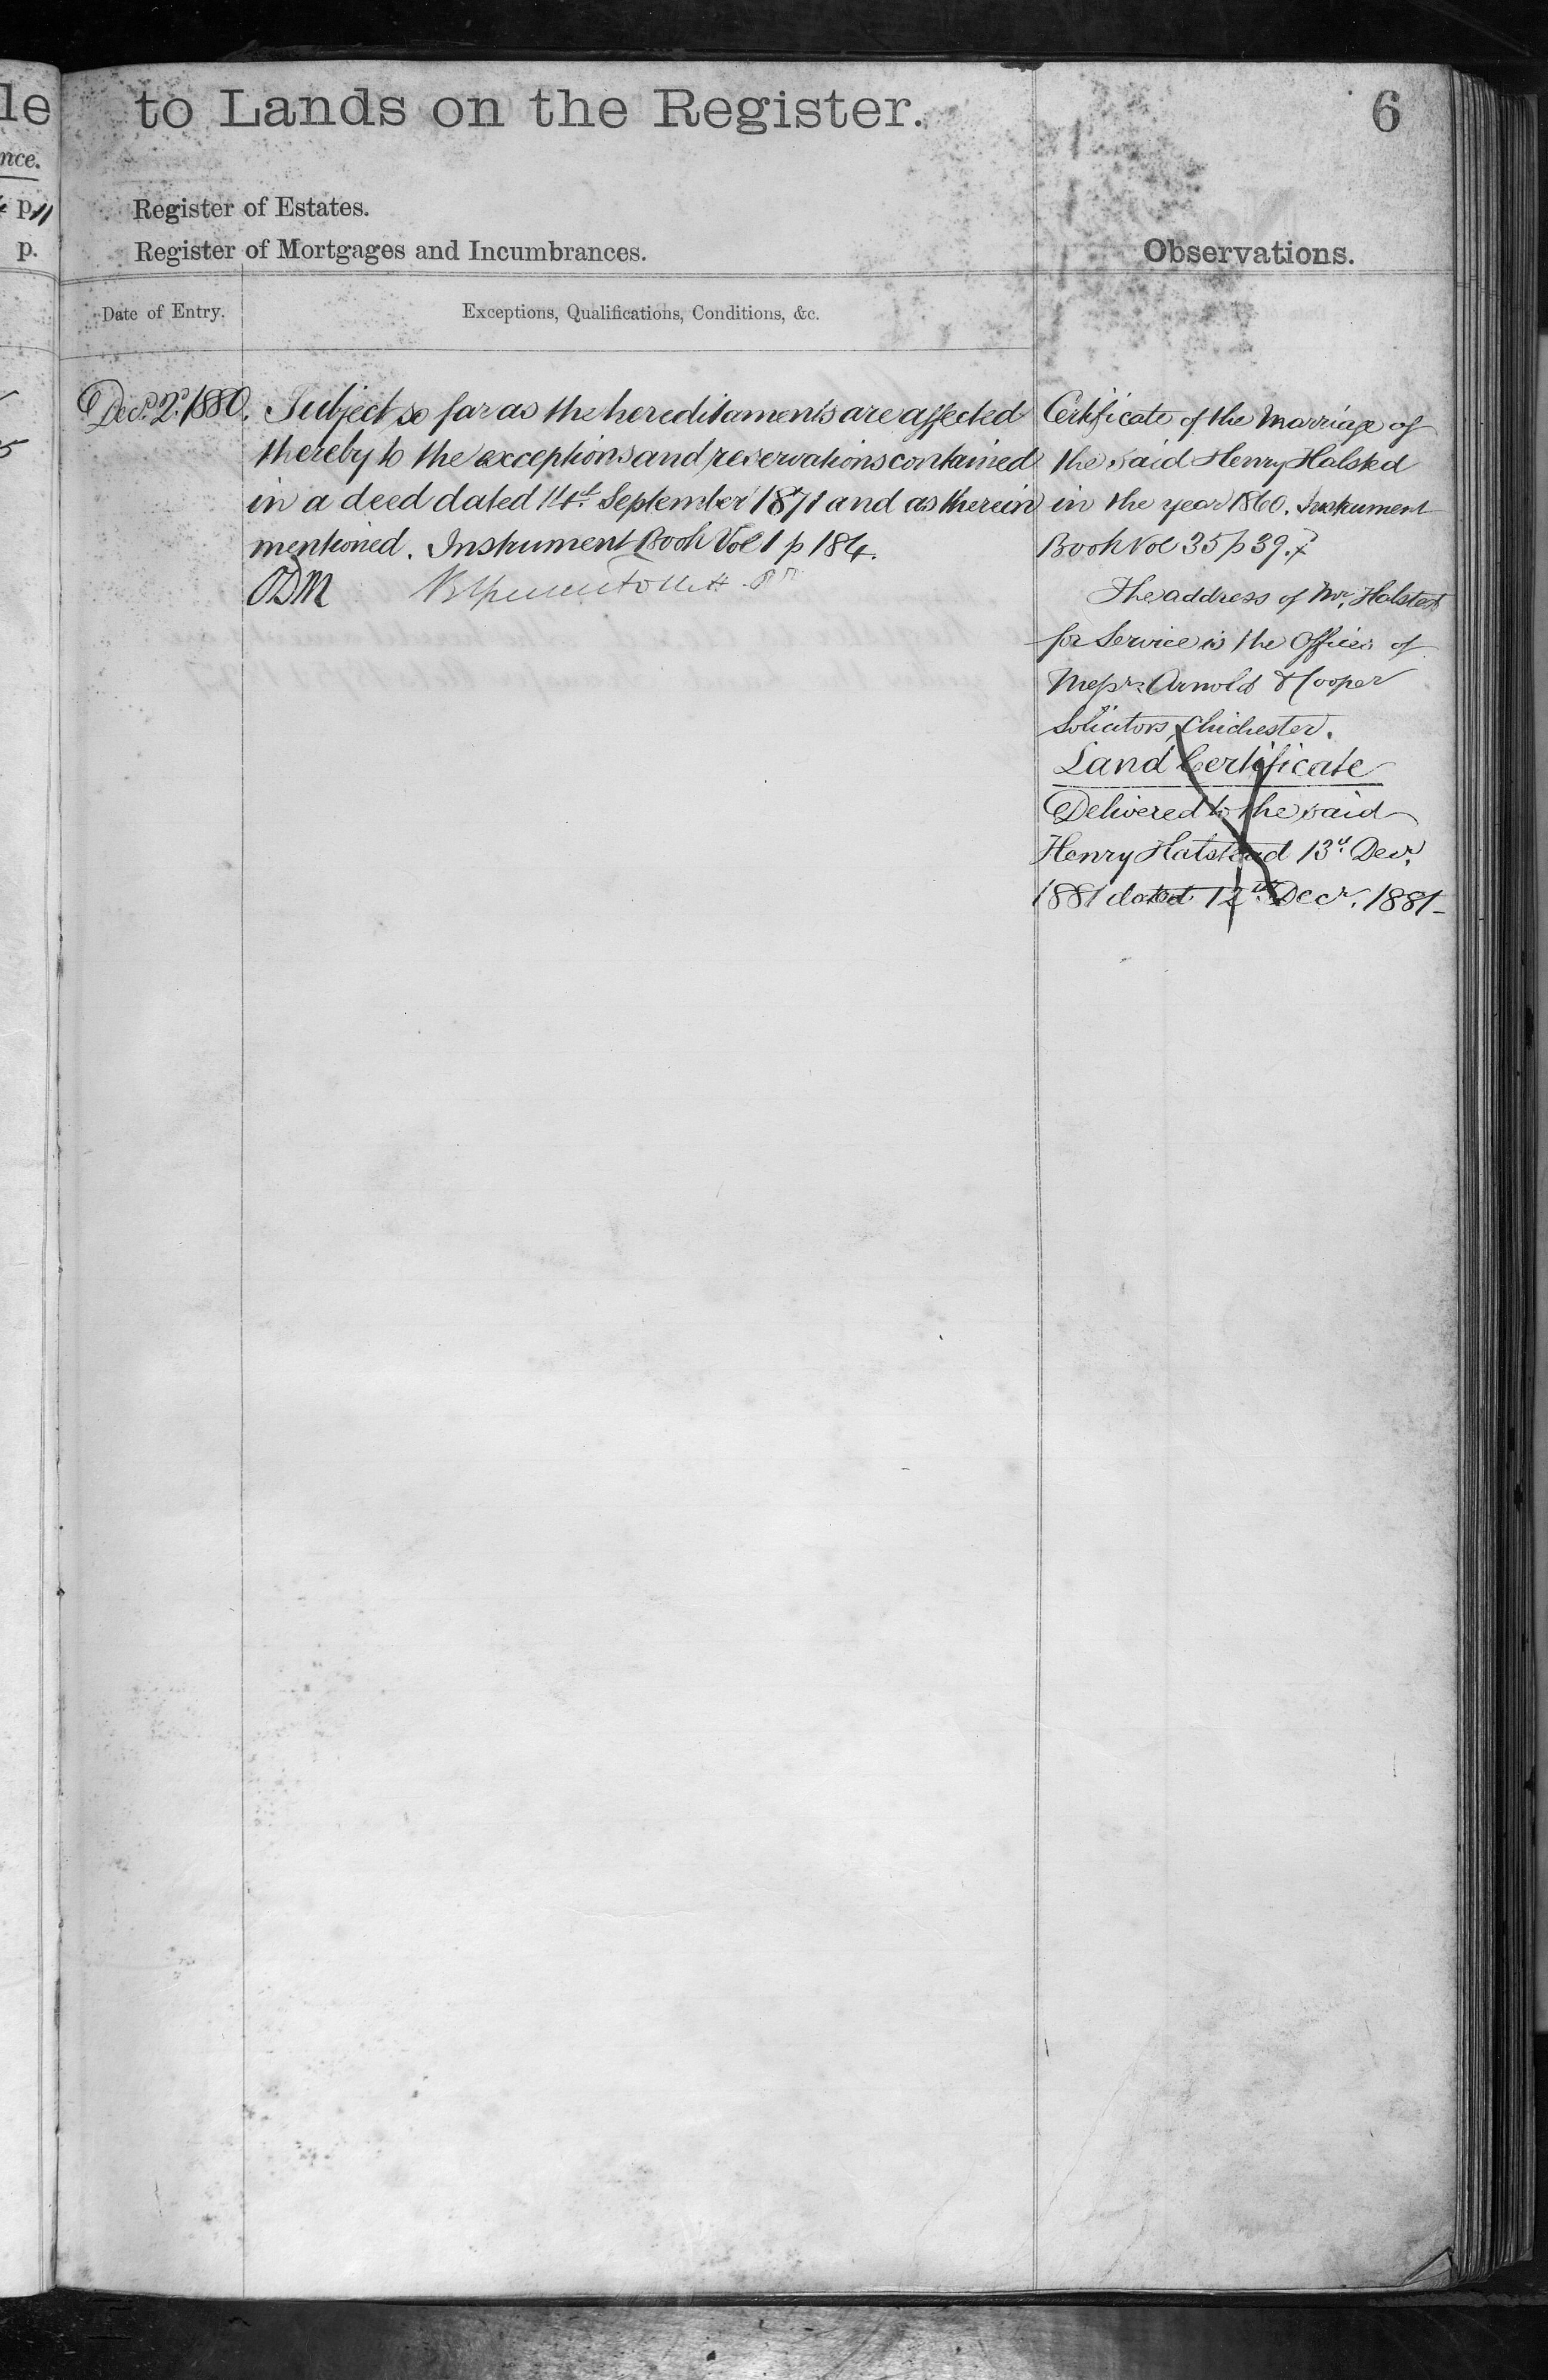 le
nce.
p. 11
p.
to Lands on the Register.
6
Register of Estates.
Register of Mortgages and Incumbrances.
Observations.
Date of Entry.
Exceptions, Qualifications, Conditions, &c.
Decr. 2d. 1880.
Subject so far as the hereditaments are affected
thereby to the exceptions and reservations contained
in a deed dated 14th. September 1871 and as therein
mentioned. Instrument Book Vol 1 p 184.
ODM
Certificate of the Marriage of
the said Henry Halsted
in the year 1860. Instrument
Book Vol 35 p 39.
The address of Mr. Halsted
for Service is the Offices of
Messrs. Arnold & Cooper
Solicitors, Chichester.
Land Certificate
Delivered to the said
Henry Halstead 13th. Decr.
1881 dated 12th Decr. 1881-